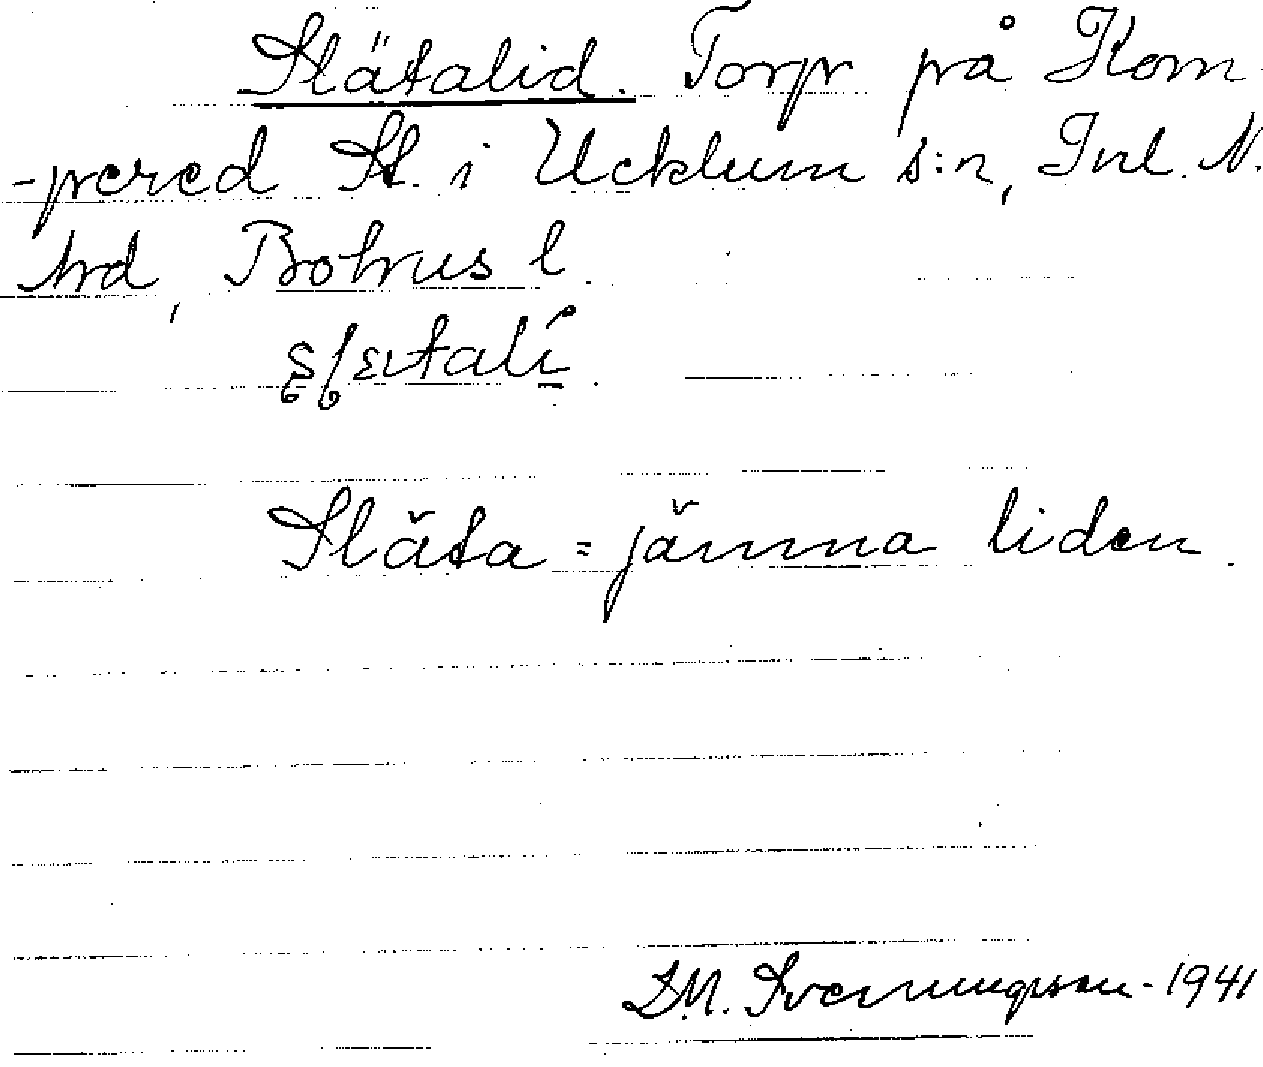 Slätalid. Torp på Kom
-pered St. i Ucklum s:n, Inl. N.
hrd, Bohus l.
Släta = jämna liden.
D.M. Svenungsson - 1941